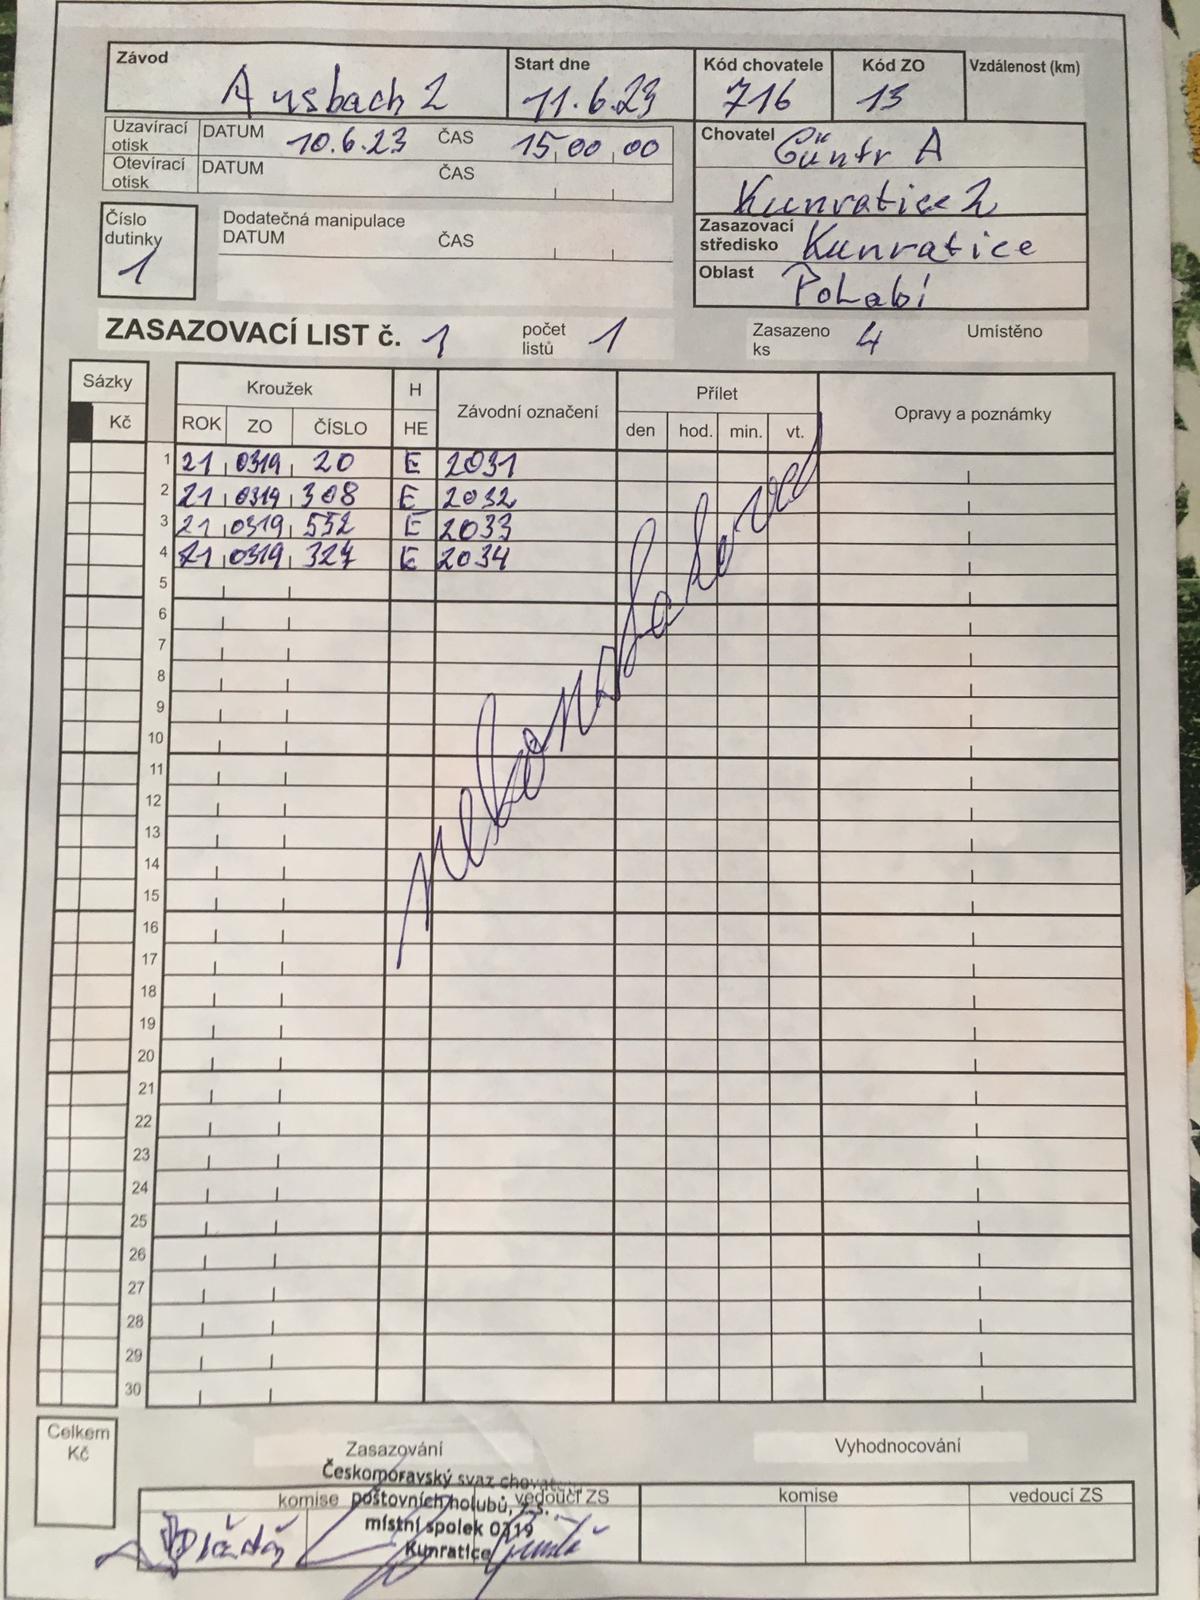 Závod Start dne Kód chovatele Kód ZO Vzdálenost (km)
Ansbach 2 11.6.23 716 13
Uzavírací otisk DATUM 10.6.23 ČAS 15 00 00
Otevírací otisk DATUM ČAS
Chovatel Güntr A
Kunratice 2
Číslo dutinky 1
Dodatečná manipulace
DATUM ČAS
Zasazovací středisko Kunratice
Oblast PoLabí
ZASAZOVACÍ LIST č. 1 počet listů 1 Zasazeno ks 4 Umístěno
Sázky Kroužek H Závodní označení Přílet Opravy a poznámky
Kč ROK ZO ČÍSLO HE den hod. min. vt.
1 21 0319 20 E 2031
2 21 0319 308 E 2032
3 21 0319 552 E 2033
4 21 0319 327 E 2034
5
6
7
8
9
10
11
12
13
14
15
16
17
18
19
20
21
22
23
24
25
26
27
28
29
30
Celkem Kč
Zasazování Vyhodnocování
Českomoravský svaz chovatelů
poštovních holubů, z.s.
místní spolek 0319
Kunratice
komise vedoucí ZS komise vedoucí ZS